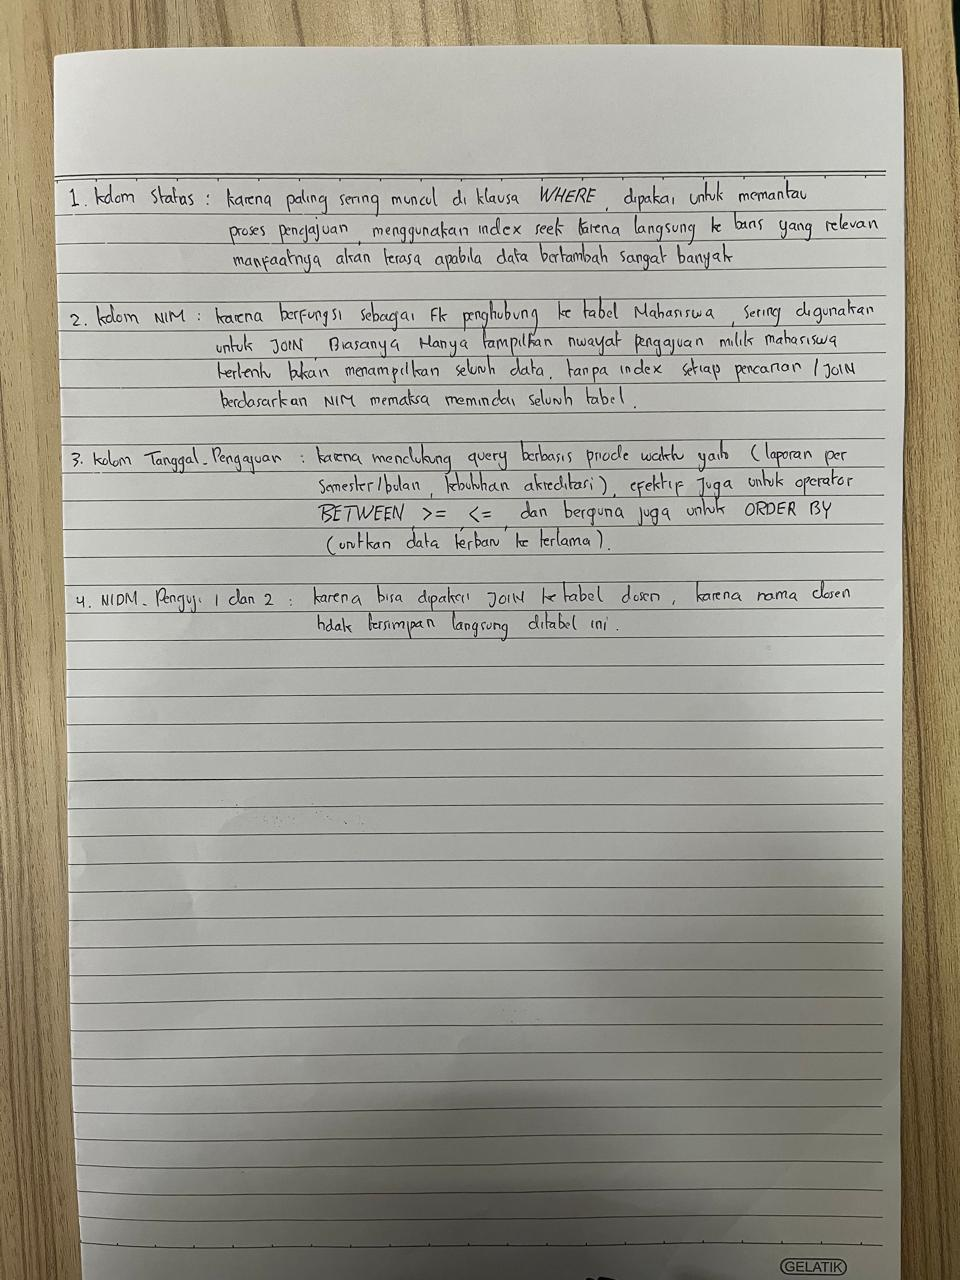 1. kolom Status : karena paling sering muncul di klausa WHERE, dipakai untuk memantau
proses pengajuan, menggunakan index seek karena langsung ke baris yang relevan
manfaatnya akan terasa apabila data bertambah sangat banyak
2. kolom NIM : karena berfungsi sebagai FK penghubung ke tabel Mahasiswa, sering digunakan
untuk JOIN, Biasanya Hanya tampilkan riwayat pengajuan milik mahasiswa
tertentu bukan menampilkan seluruh data, tanpa index setiap pencarian / JOIN
berdasarkan NIM memaksa memindai seluruh tabel.
3. kolom Tanggal_Pengajuan : karena mendukung query berbasis priode waktu yaitu (laporan per
semester/bulan, kebutuhan akreditasi), efektif juga untuk operator
BETWEEN, >= <=, dan berguna juga untuk ORDER BY
(urutkan data terbaru ke terlama).
4. NIDM_Penguji 1 dan 2 : karena bisa dipakai JOIN ke tabel dosen, karena nama dosen
tidak tersimpan langsung ditabel ini.
GELATIK